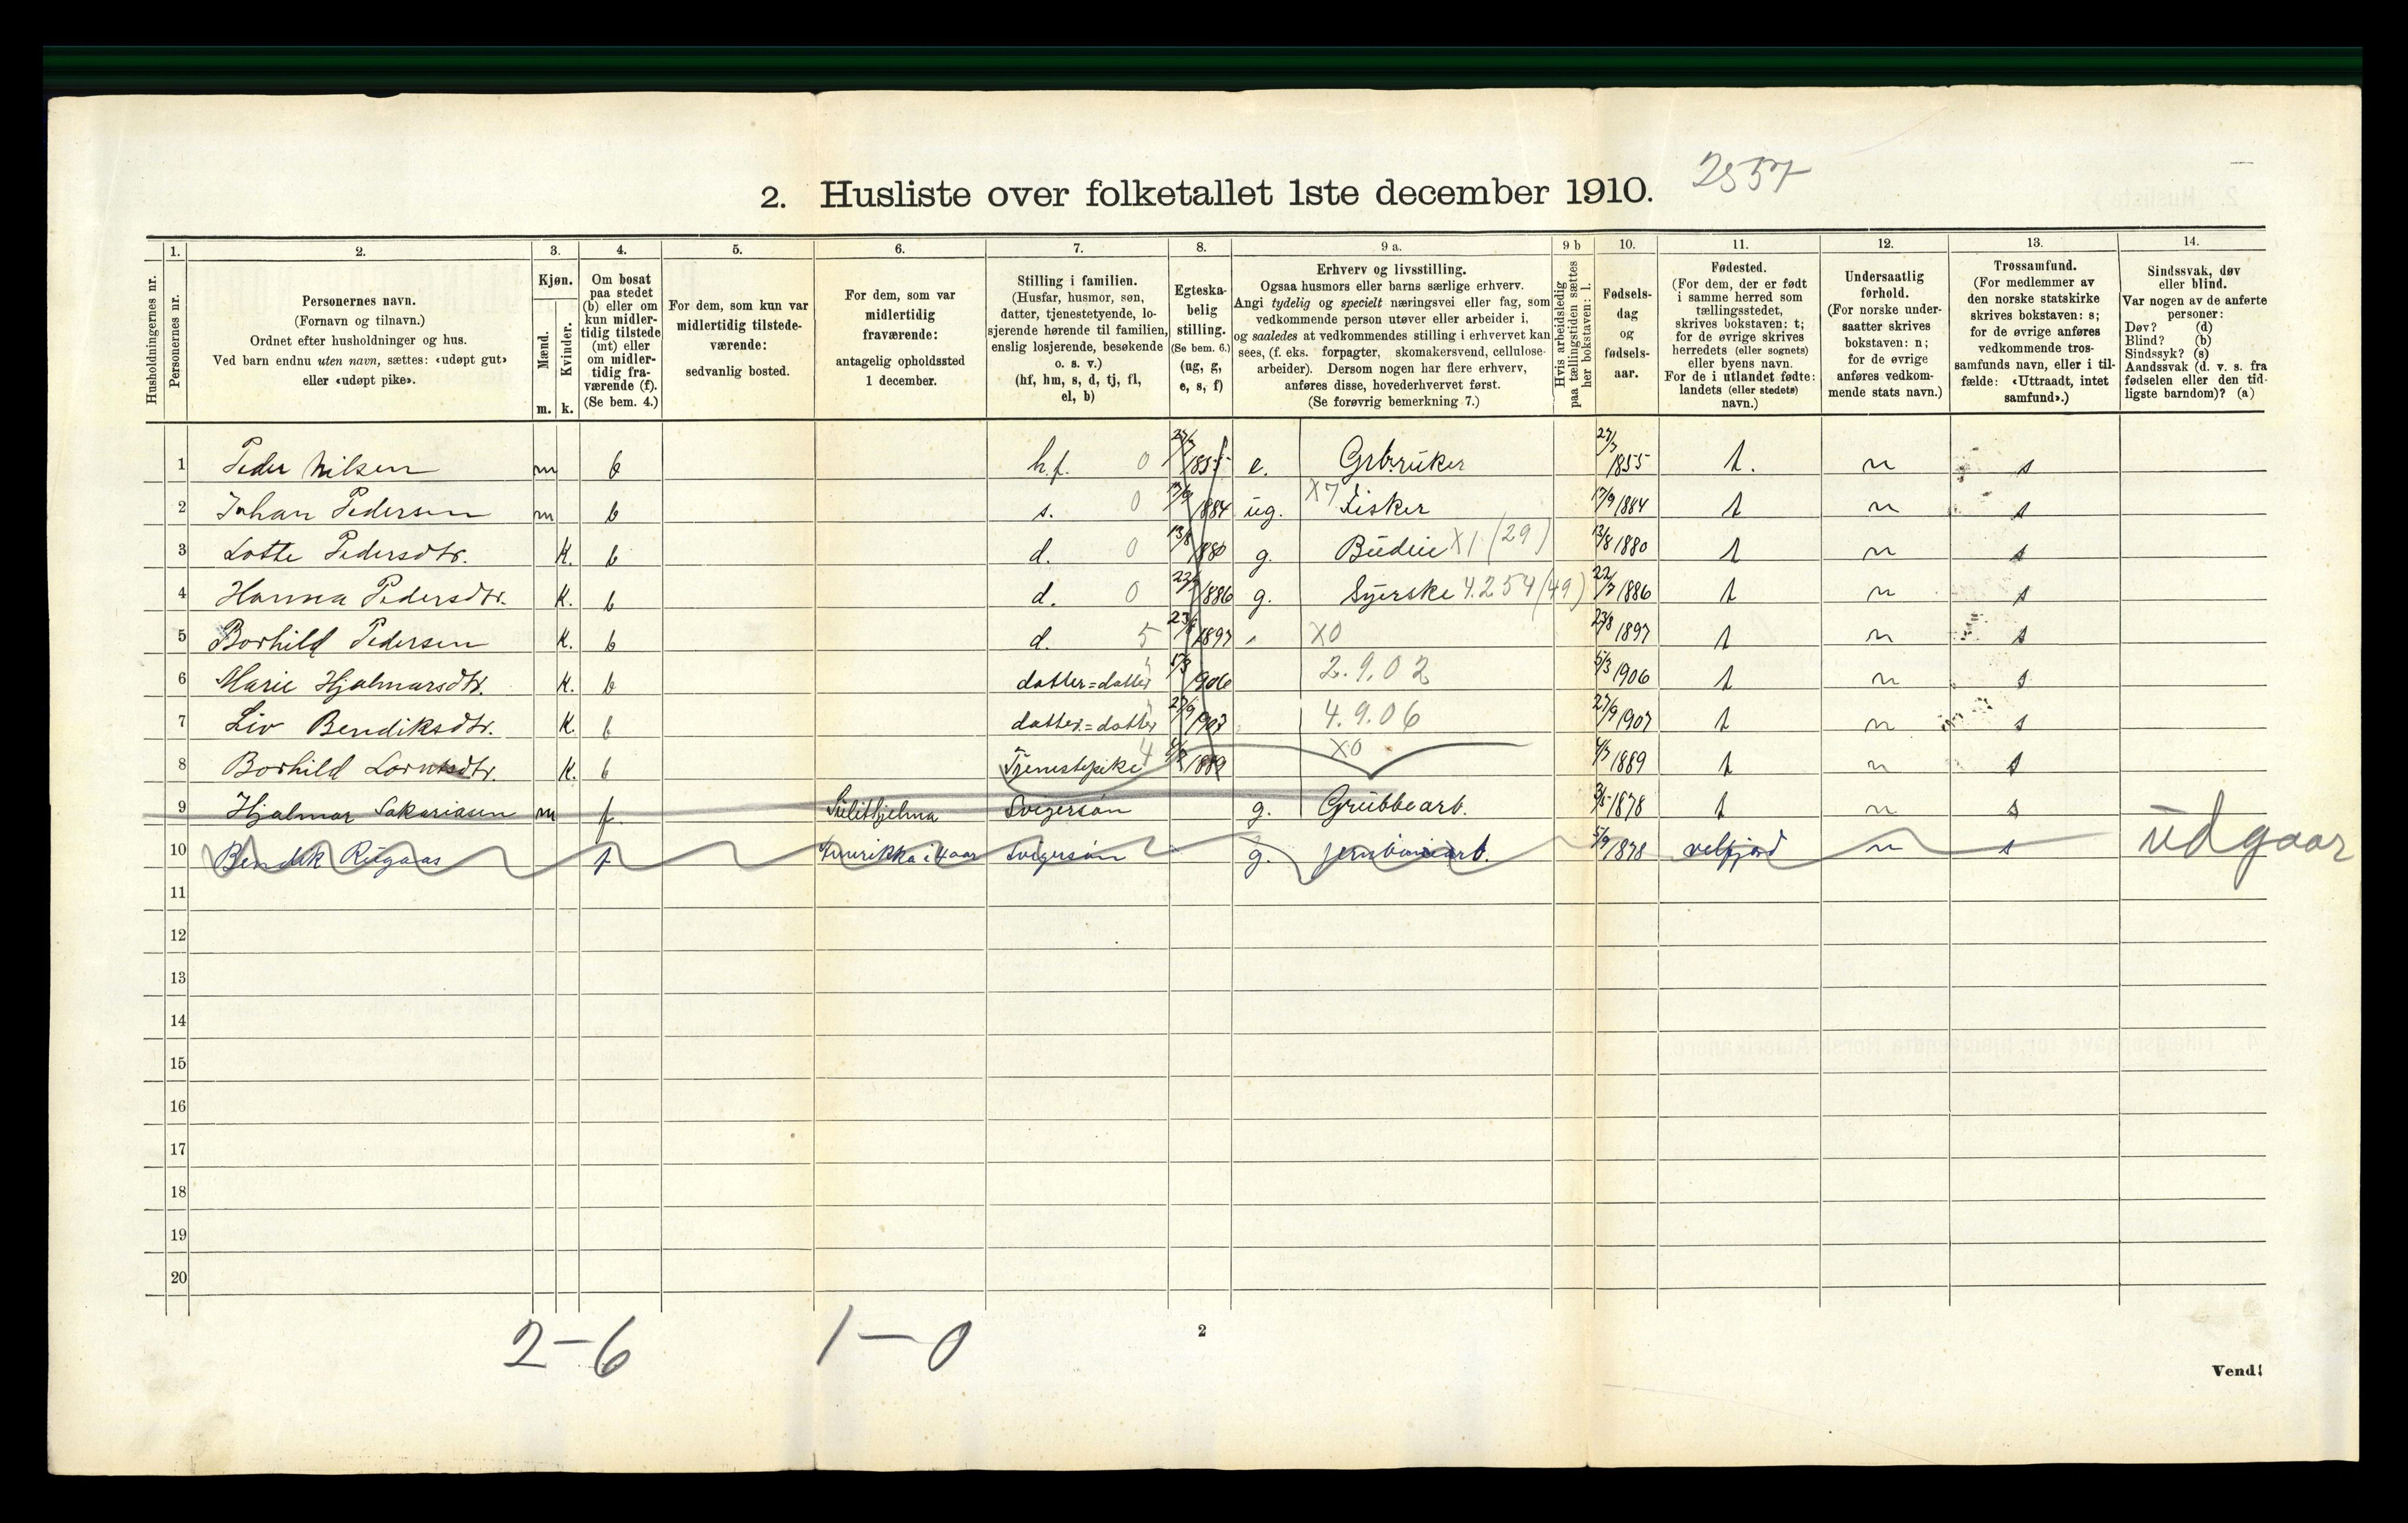 2. Husliste over folketallet 1ste december 1910. 2557
Husholdningernes nr.
1. Personernes nr.
2. Personernes navn.
(Fornavn og tilnavn.)
Ordnet efter husholdninger og hus.
Ved barn endnu uten navn, sættes: «udøpt gut»
eller «udøpt pike».
3. Kjøn.
Mænd. Kvinder.
m. k.
4. Om bosat
paa stedet
(b) eller om
kun midler-
tidig tilstede
(mt) eller
om midler-
tidig fra-
værende (f).
(Se bem. 4.)
5. For dem, som kun var
midlertidig tilstede-
værende:
sedvanlig bosted.
6. For dem, som var
midlertidig
fraværende:
antagelig opholdssted
1 december.
7. Stilling i familien.
(Husfar, husmor, søn,
datter, tjenestetyende, lo-
sjerende hørende til familien,
enslig losjerende, besøkende
o. s. v.)
(hf, hm, s, d, tj, fl,
el, b)
8. Egteska-
belig
stilling.
(Se bem. 6.)
(ug, g,
e, s, f)
9 a. Erhverv og livsstilling.
Ogsaa husmors eller barns særlige erhverv.
Angi tydelig og specielt næringsvei eller fag, som
vedkommende person utøver eller arbeider i,
og saaledes at vedkommendes stilling i erhvervet kan
sees, (f. eks. forpagter, skomakersvend, cellulose-
arbeider). Dersom nogen har flere erhverv,
anføres disse, hovederhvervet først.
(Se forøvrig bemerkning 7.)
9 b Hvis arbeidsledig
paa tællingstiden sættes
her bokstaven: l.
10. Fødsels-
dag
og
fødsels-
aar.
11. Fødested.
(For dem, der er født
i samme herred som
tællingsstedet,
skrives bokstaven: t;
for de øvrige skrives
herredets (eller sognets)
eller byens navn.
For de i utlandet fødte:
landets (eller stedets)
navn.)
12. Undersaatlig
forhold.
(For norske under-
saatter skrives
bokstaven: n;
for de øvrige
anføres vedkom-
mende stats navn.)
13. Trossamfund.
(For medlemmer av
den norske statskirke
skrives bokstaven: s;
for de øvrige anføres
vedkommende tros-
samfunds navn, eller i til-
fælde: «Uttraadt, intet
samfund».)
14. Sindssvak, døv
eller blind.
Var nogen av de anførte
personer:
Døv? (d)
Blind? (b)
Sindssyk? (s)
Aandssvak (d. v. s. fra
fødselen eller den tid-
ligste barndom)? (a)
1 Peder Nilsen m b h.f. 0 27/3 1855 e. Grbruker 27/3 1855 t. n s
2 Johan Pedersen m b s. 0 17/9 1884 ug. X7 Fisker 17/9 1884 t n s
3 Lotte Pedersdtr. K. b d. 0 13/8 1880 g. Budeie X1 (29) 13/8 1880 t n s
4 Hanna Pedersdtr. K. b d. 0 22/7 1886 g. Syerske 4.254 (49) 22/7 1886 t n s
5 Borhild Pedersen K. b d. 5 23/8 1897 X0 23/8 1897 t n s
6 Marie Hjalmarsdtr. K. b datter=datter 5/3 1906 2.9.02 5/3 1906 t n s
7 Liv Bendiksdtr. K. b datter=datter 27/9 1907 4.9.06 27/9 1907 t n s
8 Borhild Lorntsdtr. K. b Tjenestepike 4 4/3 1889 X0 4/3 1889 t n s
9 Hjalmar Sakariasen m f. Sulitjelma Svigersøn g. Grubbearb. 1878 t s
10 Bendik Rugaas f Amerikka i 4 aar Svigersøn g. jernbanearb. 5/9 1878 velfjord n s udgaar
11
12
13
14
15
16
17
18
19
20
2-6 1-0
2
Vend!